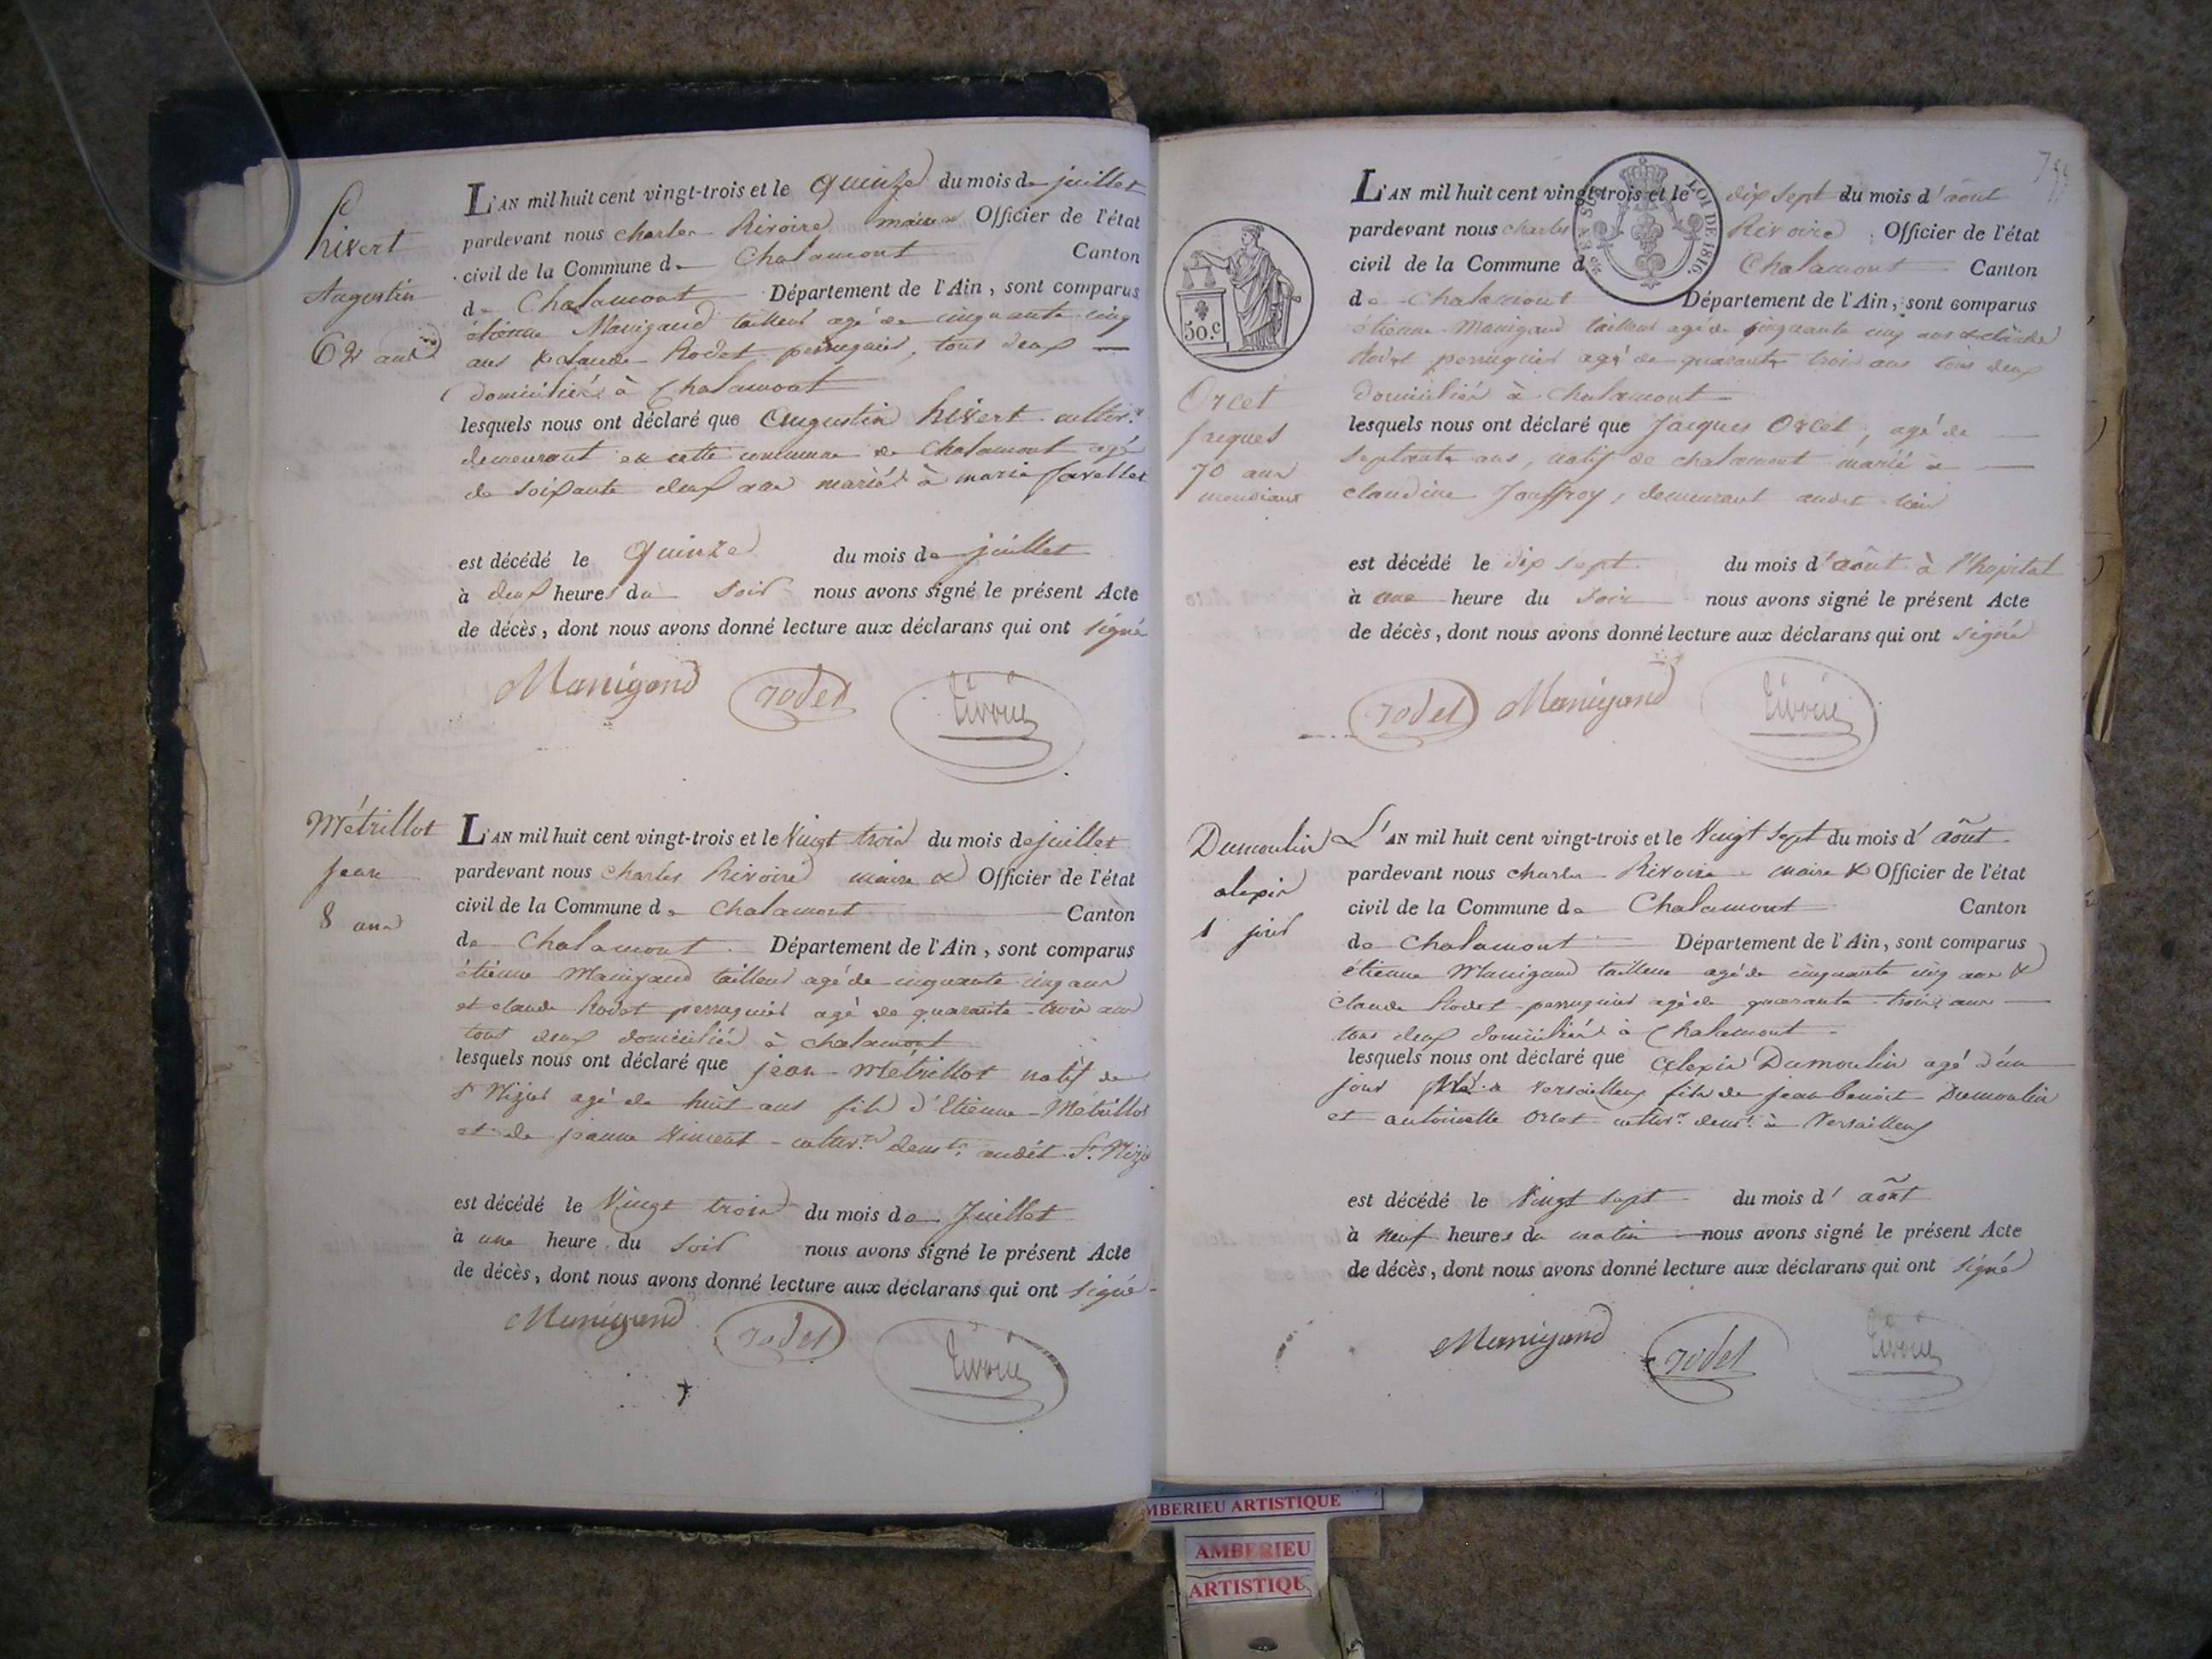 hivert
Augustin
62 ans
L'AN mil huit cent vingt-trois et le quinze du mois de juillet
pardevant nous charles Rivoire maire & Officier de l'état
civil de la Commune de Chalamont Canton
de Chalamont Département de l'Ain, sont comparus
étienne Manigand tailleur agé de cinquante cinq
ans & Claude Rodet perruquier, tous deux
domiciliés à Chalamont
lesquels nous ont déclaré que Augustin hivert cultivr.
demeurant en cette commune de Chalamont agé
de soixante deux ans marié à marie
est décédé le quinze du mois de juillet
à deux heures du soir nous avons signé le présent Acte
de décès, dont nous avons donné lecture aux déclarans qui ont signé
Manigand rodet rivoire
Métrillot
Jean
8 ans
L'AN mil huit cent vingt-trois et le Vingt trois du mois de juillet
pardevant nous charles Rivoire maire & Officier de l'état
civil de la Commune de Chalamont Canton
de Chalamont Département de l'Ain, sont comparus
étienne Manigand tailleur agé de cinquante cinq ans
et claude Rodet perruquier agé de quarante trois ans
tous deux domiciliés à chalamont
lesquels nous ont déclaré que jean Métrillot natif de
St Nizier agé de huit ans fils d'Etienne Métrillot
et de jeanne Vincent cultivrs demts audit St. Nizier
est décédé le Vingt trois du mois de Juillet
à une heure du soir nous avons signé le présent Acte
de décès, dont nous avons donné lecture aux déclarans qui ont signé
Manigand rodet rivoire
LOI DE 1816.
50.c
Orcet
Jacques
70 ans
mendiant
L'AN mil huit cent vingt-trois et le dix sept du mois d'août
pardevant nous charles Rivoire Officier de l'état
civil de la Commune de Chalamont Canton
de Chalamont Département de l'Ain, sont comparus
étienne Manigand tailleur agé de cinquante cinq ans & claude
Rodet perruquier agé de quarante trois ans tous deux
domiciliés à Chalamont
lesquels nous ont déclaré que Jacques Orcet, agé de
septante ans, natif de chalamont marié à
claudine Jouffroy, demeurant audit lieu
est décédé le dix sept du mois d'août à l'hopital
à une heure du soir nous avons signé le présent Acte
de décès, dont nous avons donné lecture aux déclarans qui ont signé
rodet Manigand rivoire
Dumoulin
alexis
1 jour
L'AN mil huit cent vingt-trois et le Vingt sept du mois d'août
pardevant nous charles Rivoire maire & Officier de l'état
civil de la Commune de Chalamont Canton
de Chalamont Département de l'Ain, sont comparus
étienne Manigand tailleur agé de cinquante cinq ans &
claude Rodet perruquier agé de quarante trois ans
tous deux domiciliés à Chalamont
lesquels nous ont déclaré que alexis Dumoulin agé d'un
jour né à Versailleux fils de jean benoit Dumoulin
et antoinette Orcet cultivr. demt. à Versailleux
est décédé le Vingt sept du mois d'août
à neuf heures du matin nous avons signé le présent Acte
de décès, dont nous avons donné lecture aux déclarans qui ont signé
Manigand rodet rivoire
MBERIEU ARTISTIQUE
AMBERIEU
ARTISTIQU